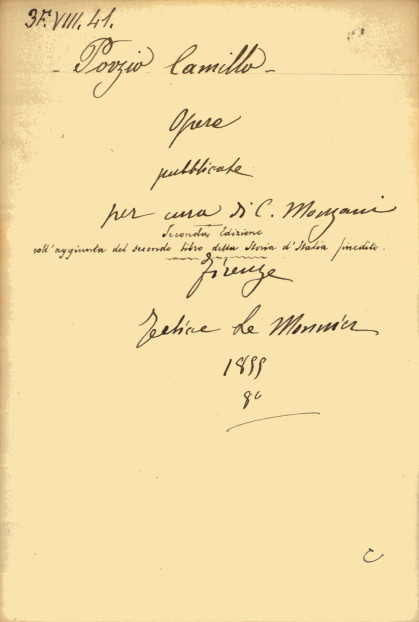 3F. VIII. 41.
- Porzio Camillo -
Opere
pubblicate
per cura di C. Monzani
Seconda Edizione
coll'aggiunta del secondo libro della Storia d'Italia inedito.
Firenze
Felice Le Monnier
1855
8º
C